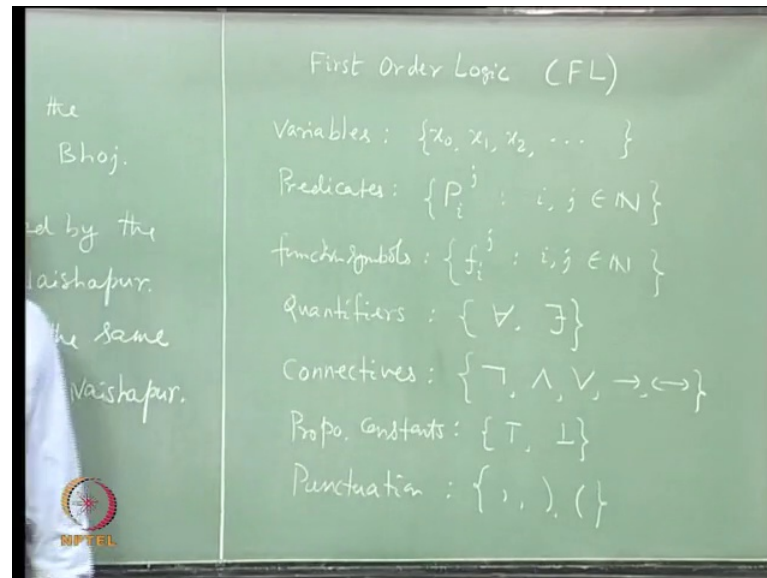 the
Bhoj.
ed by the
aishapur.
the same
Naishapur.
First Order Logic (FL)
Variables : {x₀, x₁, x₂, ⋯ }
Predicates : {Pᵢʲ : i, j ∈ ℕ}
function symbols : {fᵢʲ : i, j ∈ ℕ }
Quantifiers : { ∀, ∃}
Connectives : {¬, ∧, ∨, →, ↔}
Propo. Constants : {⊤, ⊥}
Punctuation : { , , ), (}
NPTEL